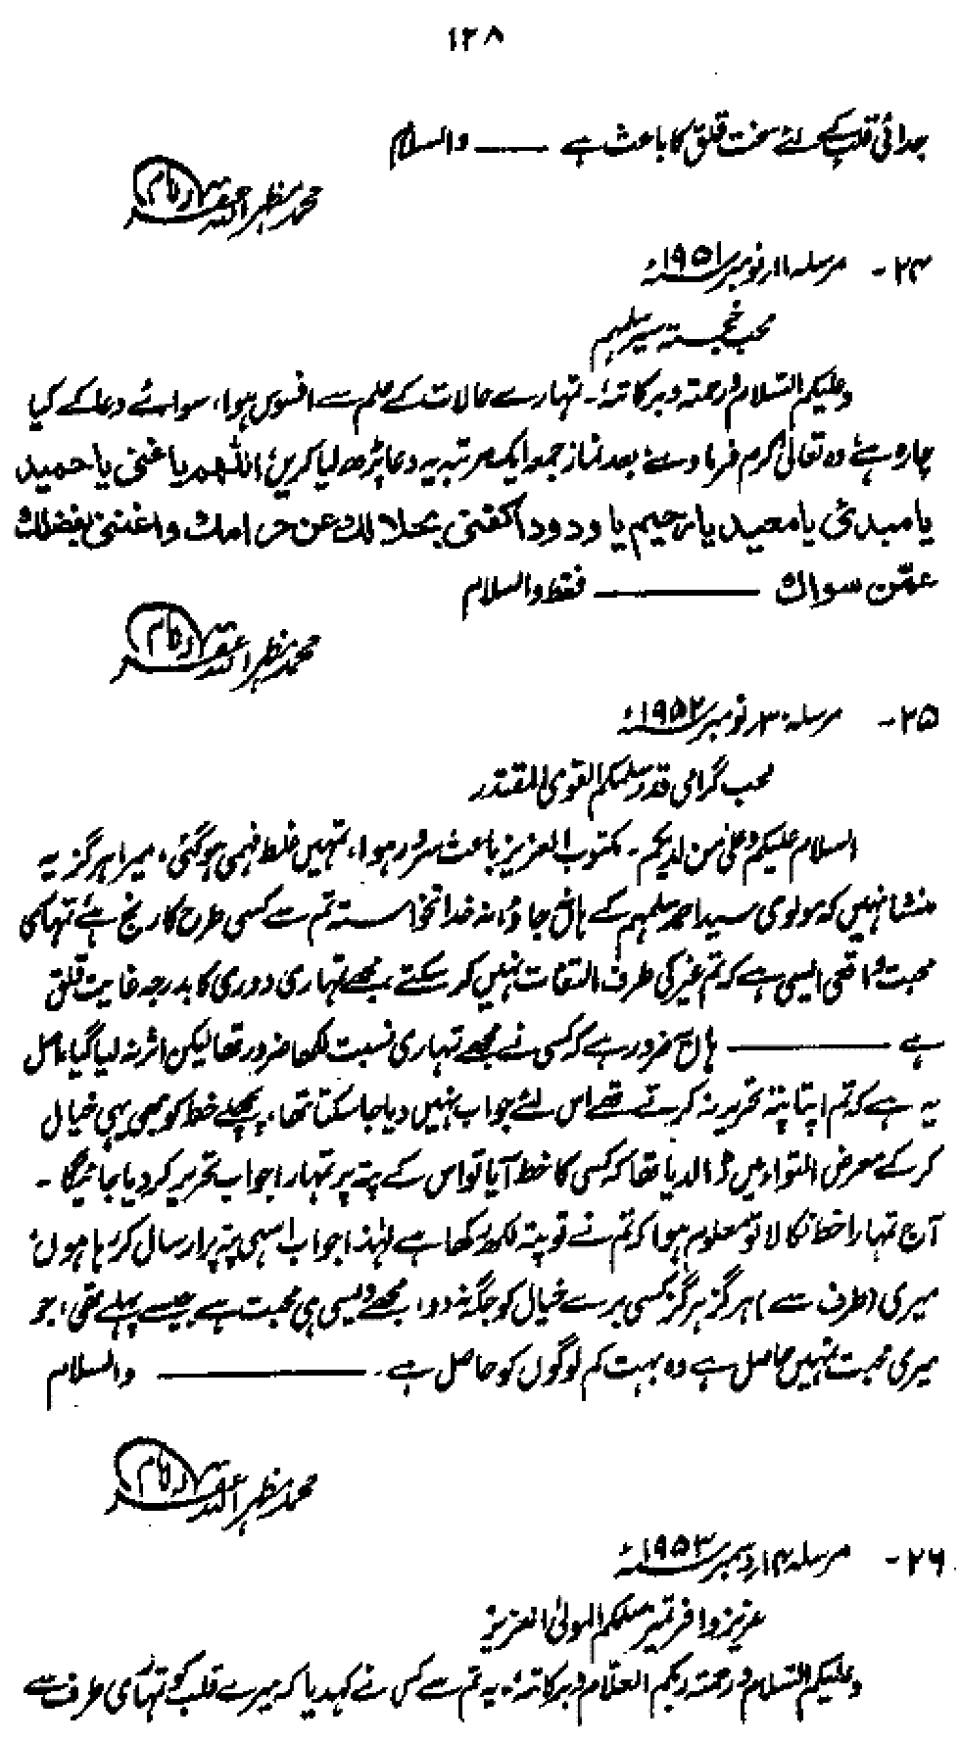 ۱۲۸
جدائی قلب کے لئے سخت قلق کا باعث ہے ـــــ والسلام
محمد مظہر اللہ غفرلہ امام
۲۴- مرسلہ ۱۱ر نومبر ۱۹۵۱ء
محب خجستہ سیر سلمہم
وعلیکم السلام ورحمتہ وبرکاتہٗ۔ تمہارے حالات کے علم سے افسوس ہوا، سوائے دعا کے کیا
چارہ ہے، وہ تعالیٰ کرم فرمادے، بعد نماز جمعہ ایک مرتبہ یہ دعا پڑھ لیا کریں: اللھم یا غنی یا حمید
یا مبدئ یا معید یا رحیم یا ودود اکفنی بحلالک عن حرامک واغننی بفضلک
عمّن سواک ـــــ فقط والسلام
محمد مظہر اللہ غفرلہ امام
۲۵- مرسلہ ۳۰ر نومبر ۱۹۵۲ء
محب گرامی قدر سلمکم القوی المقتدر
السلام علیکم وعلیٰ من لدیکم۔ مکتوب العزیز باعث سرور ہوا، تمہیں غلط فہمی ہوگئی، میرا ہرگز یہ
منشا نہیں کہ مولوی سید احمد سلمہم کے ہاں جاؤ، نہ خدانخواستہ تم سے کسی طرح کا رنج ہے، تمہاری
محبت واقعی ایسی ہے کہ تم غیر کی طرف التفات نہیں کرسکتے، مجھے تمہاری دوری کا بدرجہ غایت قلق
ہے ـــــ ہاں ضرور ہے کہ کسی نے مجھے تمہاری نسبت لکھا ضرور تھا لیکن اثر نہ لیا گیا، اصل
یہ ہے کہ تم اپنا پتہ تحریر نہ کرتے تھے اس لئے جواب نہیں دیا جاسکتا تھا، پچھلے خط کو بھی یہی خیال
کرکے معرض التواء میں ڈالدیا تھا کہ کسی کا خط آیا تو اس کے پتہ پر تمہارا جواب تحریر کردیا جائیگا۔
آج تمہارا خط نکالا تو معلوم ہوا کہ تم نے تو پتہ لکھ رکھا ہے لہٰذا جواب اسی پتہ پر ارسال کررہا ہوں،
میری (طرف سے) ہرگز ہرگز کسی برے خیال کو جگہ نہ دو، مجھے ویسی ہی محبت ہے جیسے پہلے تھی، جو
میری محبت تمہیں حاصل ہے وہ بہت کم لوگوں کو حاصل ہے۔ ـــــ والسلام
محمد مظہر اللہ غفرلہ امام
۲۶- مرسلہ ۱۴ر دسمبر ۱۹۵۳ء
عزیز وافر تمیز سلمکم المولیٰ العزیز
وعلیکم السلام ورحمتہ ربکم العلام وبرکاتہٗ، یہ تم سے کس نے کہدیا کہ میرے قلب کو تمہاری طرف سے